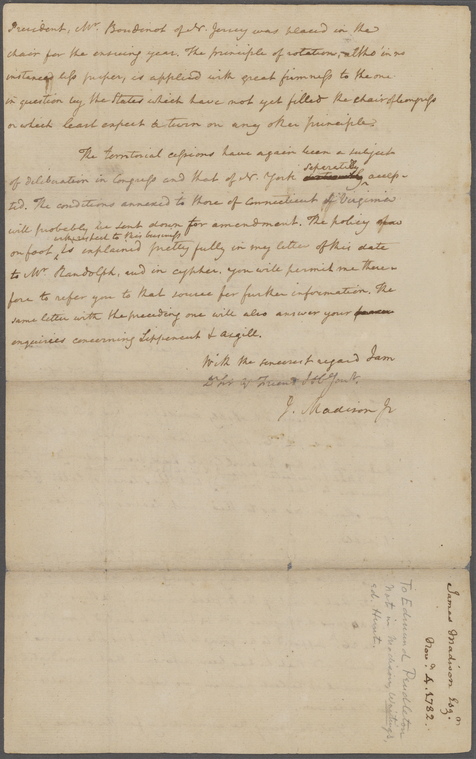 President, Mr. Boudenot of N. Jersey was placed in the
chair for the ensuing year. The principle of rotation, altho' in no
instance less proper, is applied with great firmness to the one
in question by the States which have not yet filled the chair of Congress
or which least expect to turn on any other principle.
The territorial cessions have again been a subject
of deliberation in Congress and that of N. York seperately accep-
ted. The conditions annexed to those of Connecticut & Virginia
will probably be sent down for amendment. The policy now
on foot, with respect to this business is explained pretty fully in my letter of this date
to Mr. Randolph, and in cypher. You will permit me there-
fore to refer you to that source for further information. The
same letter with the preceding one will also answer your
enquiries concerning Lippencut & Asgill.
With the sincerest regard I am
Dr Sir Yr Friend & Obt Servt.
J. Madison Jr
James Madison Esqr.
Novr. 4. 1782.
To Edmund Pendleton
Not in Madison, Writings,
ed. Hunt.